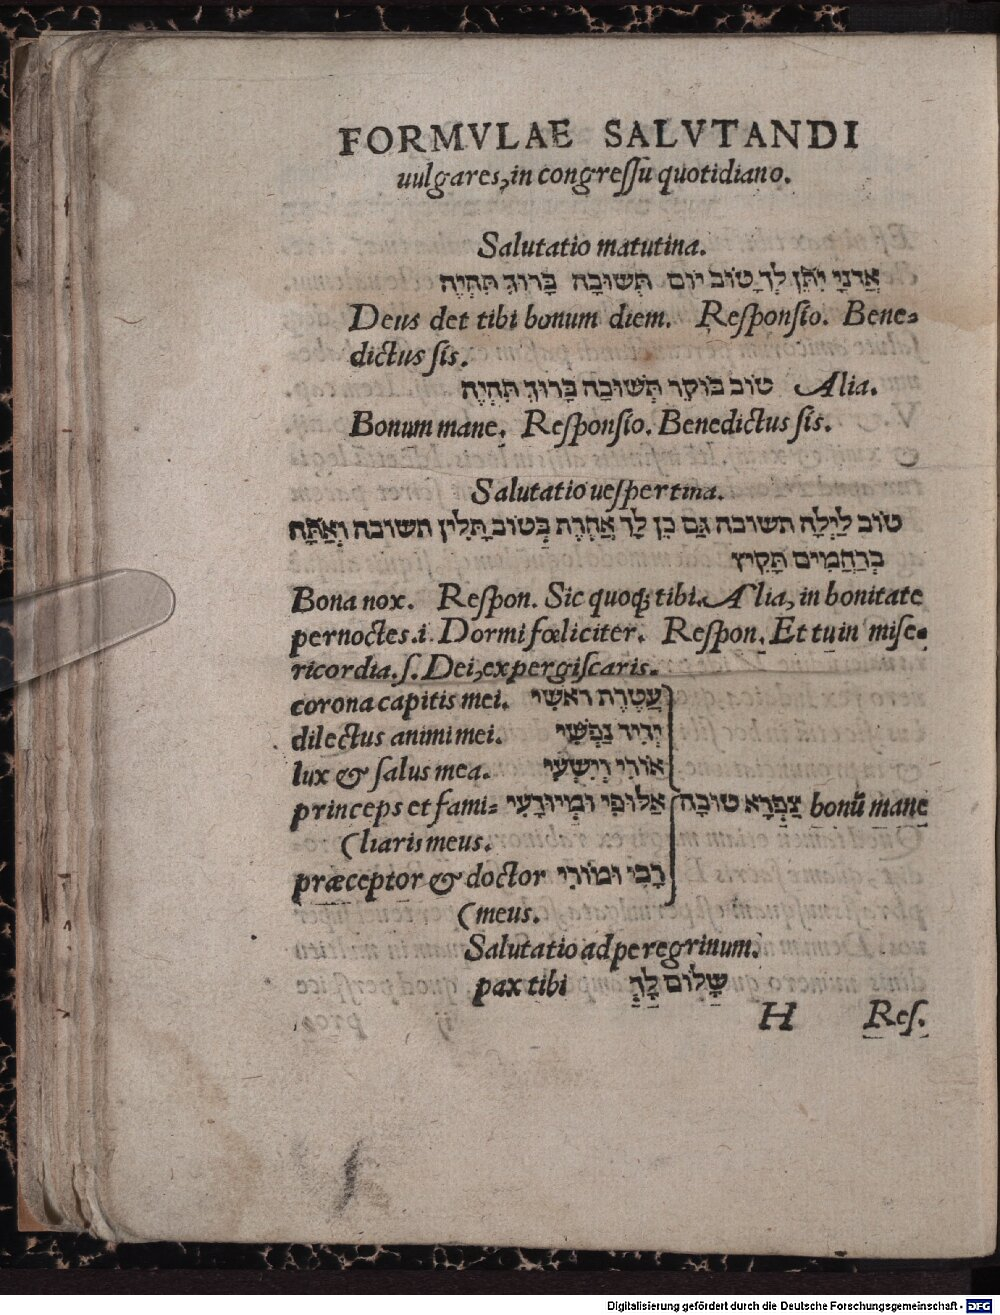 FORMVLAE SALVTANDI
uulgares, in congreſſu quotidiano.
Salutatio matutina.
אֲדֹנָי יִתֵּן לְךָ טוֹב יוֹם תְּשׁוּבָה בָּרוּךְ תִּהְיֶה
Deus det tibi bonum diem. Reſponſio. Bene-
dictus ſis.
Alia. טוֹב בּוֹקֶר תְּשׁוּבָה בָּרוּךְ תִּהְיֶה
Bonum mane. Reſponſio. Benedictus ſis.
Salutatio ueſpertina.
טוֹב לַיְלָה תשובה גַּם כֵּן לָךְ אֲחֶרֶת בְּטוֹב תָּלִין תשובה וְאַתָּה
בְּרַחֲמִים תָּקִיץ
Bona nox. Reſpon. Sic quoqꝫ tibi. Alia, in bonitate
pernoctes .i. Dormi fœliciter. Reſpon. Et tu in miſe-
ricordia .ſ. Dei, expergiſcaris.
corona capitis mei. עֲטֶרֶת רֹאשִׁי
dilectus animi mei. יְדִיד נַפְשִׁי
lux & ſalus mea. אוֹרִי וְיִשְׁעִי
princeps et fami- אַלּוּפִי וּמְיוּדָּעִי צַפְרָא טוֹבָה bonū mane
(liaris meus.
præceptor & doctor רַבִּי וּמוֹרִי
(meus.
Salutatio ad peregrinum.
pax tibi שָׁלוֹם לָךְ
H Reſ.
Digitalisierung gefördert durch die Deutsche Forschungsgemeinschaft - DFG